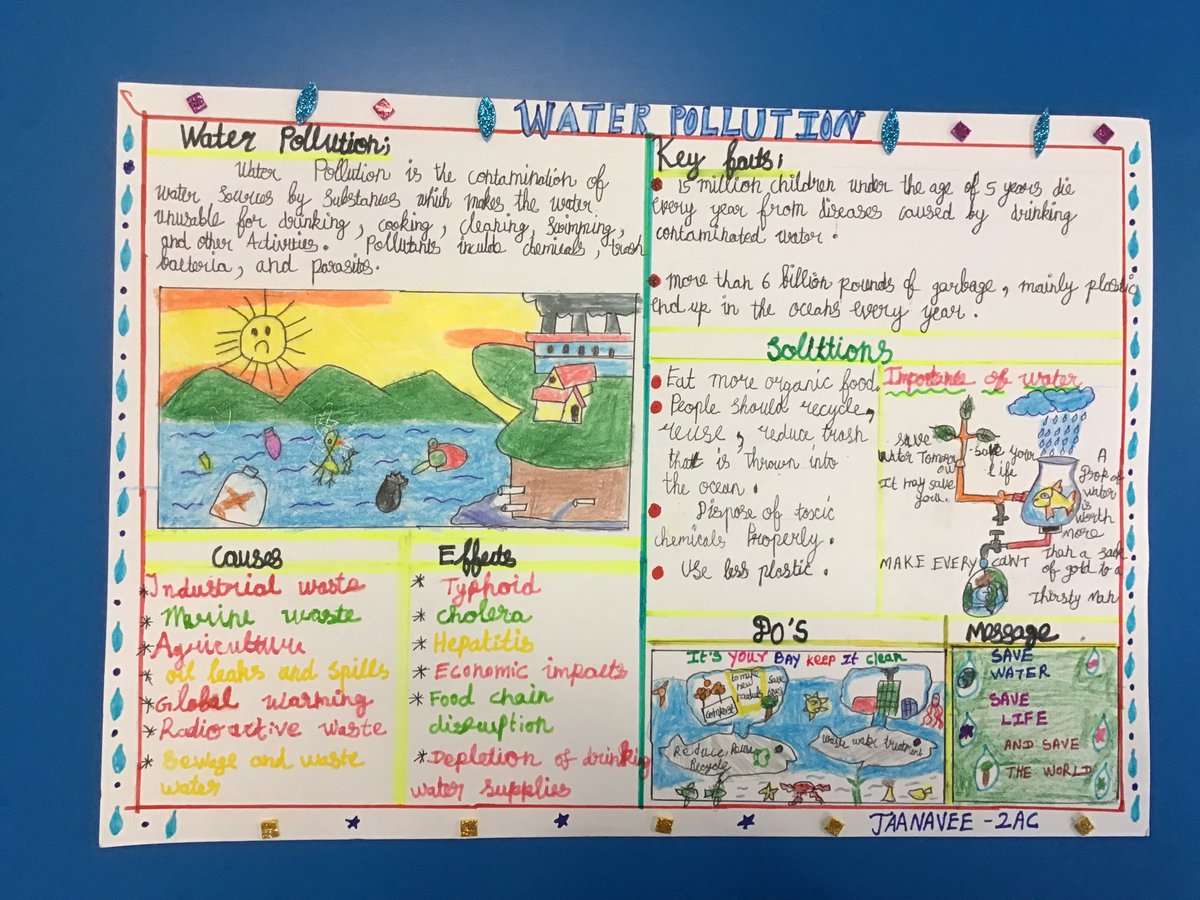 WATER POLLUTION
Water Pollution;
Water Pollution is the contamination of
Water sources by Substances which makes the water
unusable for drinking, cooking, cleaning, swimming,
and other Activities. Pollutants inculde chemicals, trash
bacteria, and parasites.
Causes
* Industrial waste
* Marine waste
* Agriculture
* oil leaks and spills
* Global warming
* Radioactive waste
* Sewage and waste
water
Effects
* Typhoid
* cholera
* Hepatitis
* Economic impacts
* Food chain
disruption
* Depletion of drinking
water supplies
Key facts;
• 15 million children under the age of 5 years die
every year from diseases caused by drinking
contaminated water.
• More than 6 billion pounds of garbage, mainly plastic
end up in the oceans every year.
Soluttions
• Eat more organic food.
• People should recycle,
reuse, reduce trash
that is thrown into
the ocean.
• Dispose of toxic
chemicals Properly.
• Use less plastic.
Importance of water
save
water Tomorr
ow
It may save
you.
save your
life
A
Drop of
water
is
worth
more
than a sack
of gold to a
Thirsty Man
MAKE EVERY
DO'S
It's YOUR BAY keep It clean
compost
to make
new
products
save
trees
Reduce Reuse
Recycle
waste water treatment
Message
SAVE
WATER
SAVE
LIFE
AND SAVE
THE WORLD
JAANAVEE - 2AC